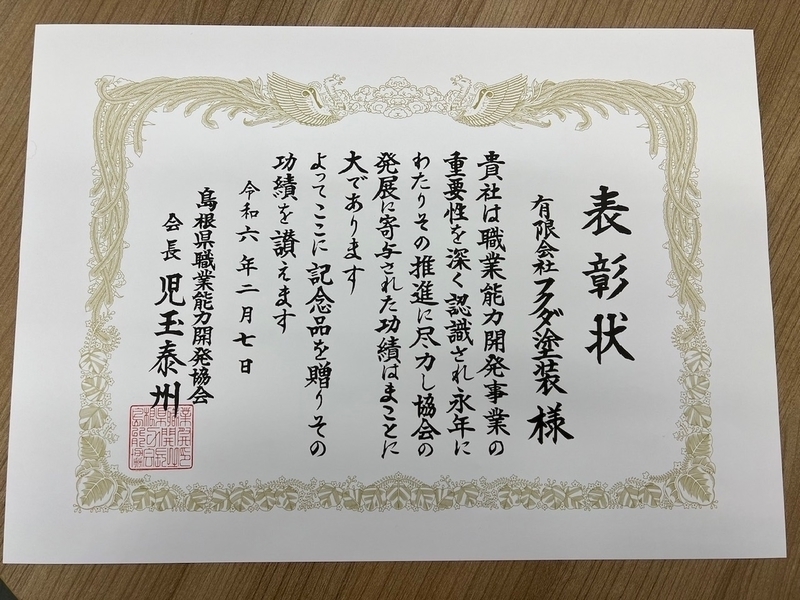 表彰状
有限会社フクダ塗装様
貴社は職業能力開発事業の
重要性を深く認識され永年に
わたりその推進に尽力し協会の
発展に寄与された功績はまことに
大であります
よってここに記念品を贈りその
功績を讃えます
令和六年二月七日
島根県職業能力開発協会
会長 児玉泰州